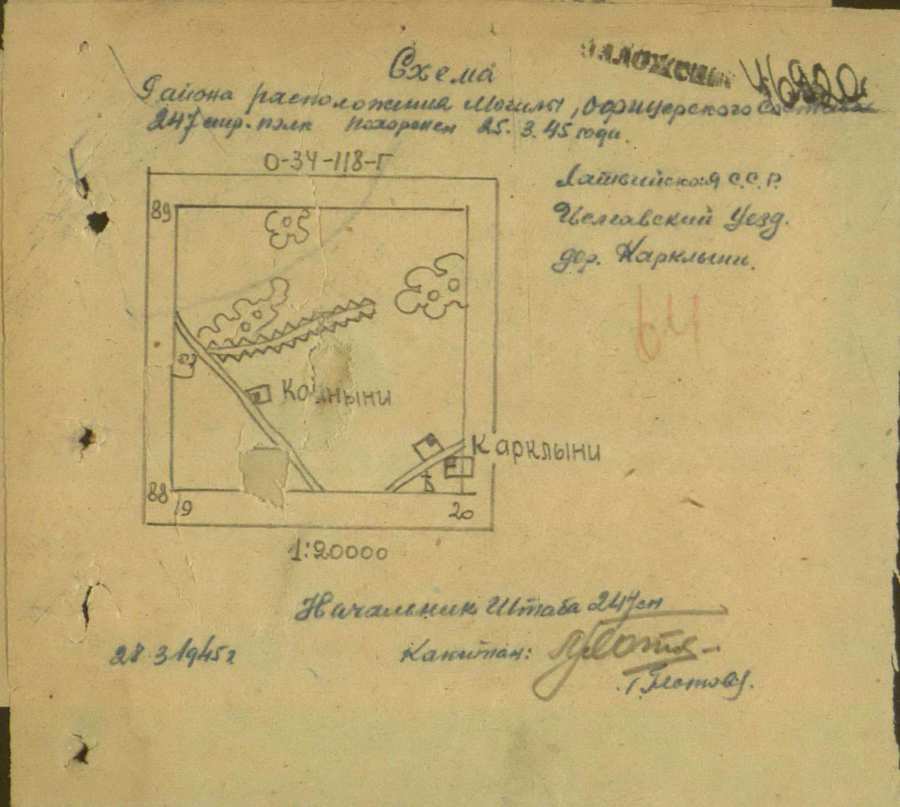 Схема
Района расположения Могилы, Офицерского Состава
247 стр. полк похоронен 25.3.45 годи.
О-34-118-Г
Латвийская С.С.Р.
Уезд.
дер. Карклыни.
64
89
Калныни
Карклыни
88
19
20
1:20000
Начальник Штаба 247 сп
28.3.1945 г
Капитан:
/Глотов/.